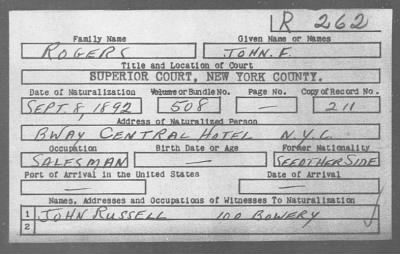 R 262
Family Name Given Name or Names
ROGERS JOHN. F.
Title and Location of Court
SUPERIOR COURT, NEW YORK COUNTY.
Date of Naturalization Volume or Bundle No. Page No. Copy of Record No.
SEPT. 8, 1892 508 — 211
Address of Naturalized Person
BWAY CENTRAL HOTEL N.Y.C.
Occupation Birth Date or Age Former Nationality
SALESMAN — SEE OTHER SIDE
Port of Arrival in the United States Date of Arrival
— —
Names, Addresses and Occupations of Witnesses To Naturalization
1 JOHN RUSSELL 100 BOWERY
2